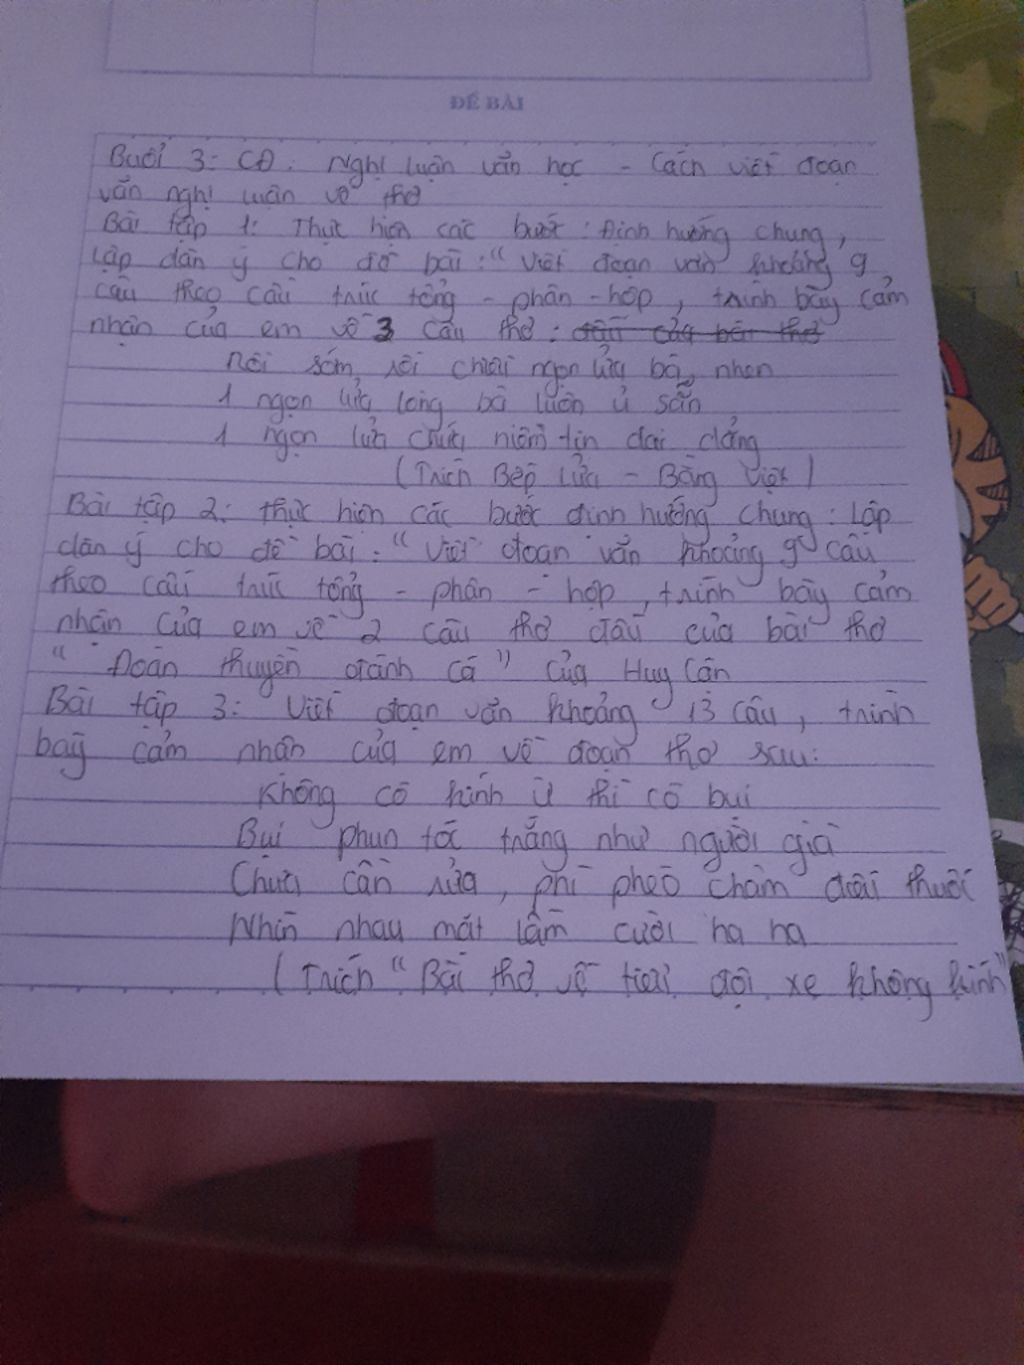 ĐỀ BÀI
Buổi 3: CĐ: Nghị luận văn học - Cách viết đoạn
văn nghị luận về thơ
Bài tập 1: Thực hiện các bước: Định hướng chung,
lập dàn ý cho đề bài: "Viết đoạn văn khoảng 9
câu theo cấu trúc tổng - phân - hợp, trình bày cảm
nhận của em về 3 câu thơ: đầu của bài thơ
Rồi sớm rồi chiều ngọn lửa bà nhen
1 ngọn lửa lòng bà luôn ủ sẵn
1 ngọn lửa chứa niềm tin dai dẳng
(Trích Bếp Lửa - Bằng Việt)
Bài tập 2: Thực hiện các bước định hướng chung: lập
dàn ý cho đề bài: "Viết đoạn văn khoảng 9 câu
theo cấu trúc tổng - phân - hợp, trình bày cảm
nhận của em về 2 câu thơ đầu của bài thơ
"Đoàn thuyền đánh cá" của Huy Cận
Bài tập 3: Viết đoạn văn khoảng 13 câu, trình
bày cảm nhận của em về đoạn thơ sau:
Không có kính ừ thì có bụi
Bụi phun tóc trắng như người già
Chưa cần rửa, phì phèo châm điếu thuốc
Nhìn nhau mặt lấm cười ha ha
(Trích "Bài thơ về tiểu đội xe không kính"